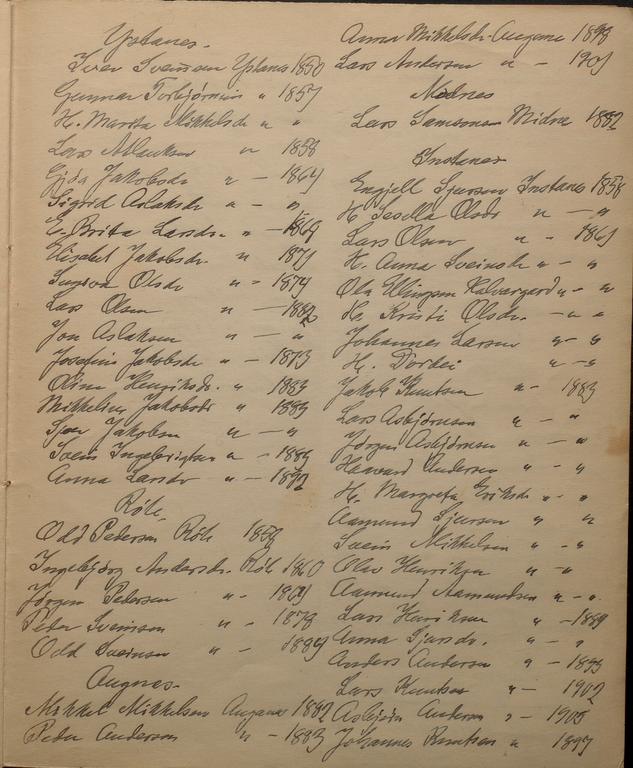 Ystanes.
Iver Sveinsen Ystanes 1850
Gunnar Torbjørnsen " 1857
H. Marita Mikkelsdr " "
Lars Aslaksen " 1858
Gjøa Jakobsdr " - 1864
Sigrid Aslaksdr " - "
E. Brita Larsdr. " - 1869
Elisabet Jakobsdr. " 1871
Sugiva Olsdr " - 1874
Lars Olsen " - 1882
Jon Aslaksen " - "
Josefine Jakobsdr " - 1873
Oline Henriksdr. " 1883
Mikkeline Jakobsdr " 1883
Iver Jakobsen " - "
Svein Ingebrigtsen " - 1889
Anna Larsdr " - 1892
Röle,
Odd Pedersen Röle 1859
Ingebjørg Andersdr. Röle 1860
Jörgen Pedersen " - 1864
Peder Sveinsen " - 1878
Odd Sveinsen " - 1884
Augnes.
Mikkel Mikkelsen Augnes 1882
Peder Andersen " - 1883
Anna Mikkelsdr. Augnes 1898
Lars Andersen " - 1901
Midnes
Lars Samsonsen Midnes 1882
Instanes
Engjell Sjursen Instanes 1858
H. Sesella Olsdr " - "
Lars Olsen " - 1861
H. Anna Sveinsdr " - "
Ola Ellingsen Kalvargard " - "
H. Kristi Olsdr. - " "
Johannes Larsen " - "
H. Dordei " - "
Jakob Knutsen " - 1883
Lars Asbjörnsen " - "
Jörgen Asbjörnsen " - "
Haavard Andersen " - "
H. Margreta Eriksdr " - "
Aamund Sjursen " "
Svein Mikkelsen " - "
Olav Henriksen " - "
Aamund Aamundsen " - "
Lars Henriksen " - 1889
Anna Sjursdr. " - "
Anders Andersen " - 1895
Lars Knutsen " - 1902
Asbjörn Andersen " - 1905
Johannes Knutsen " 1897